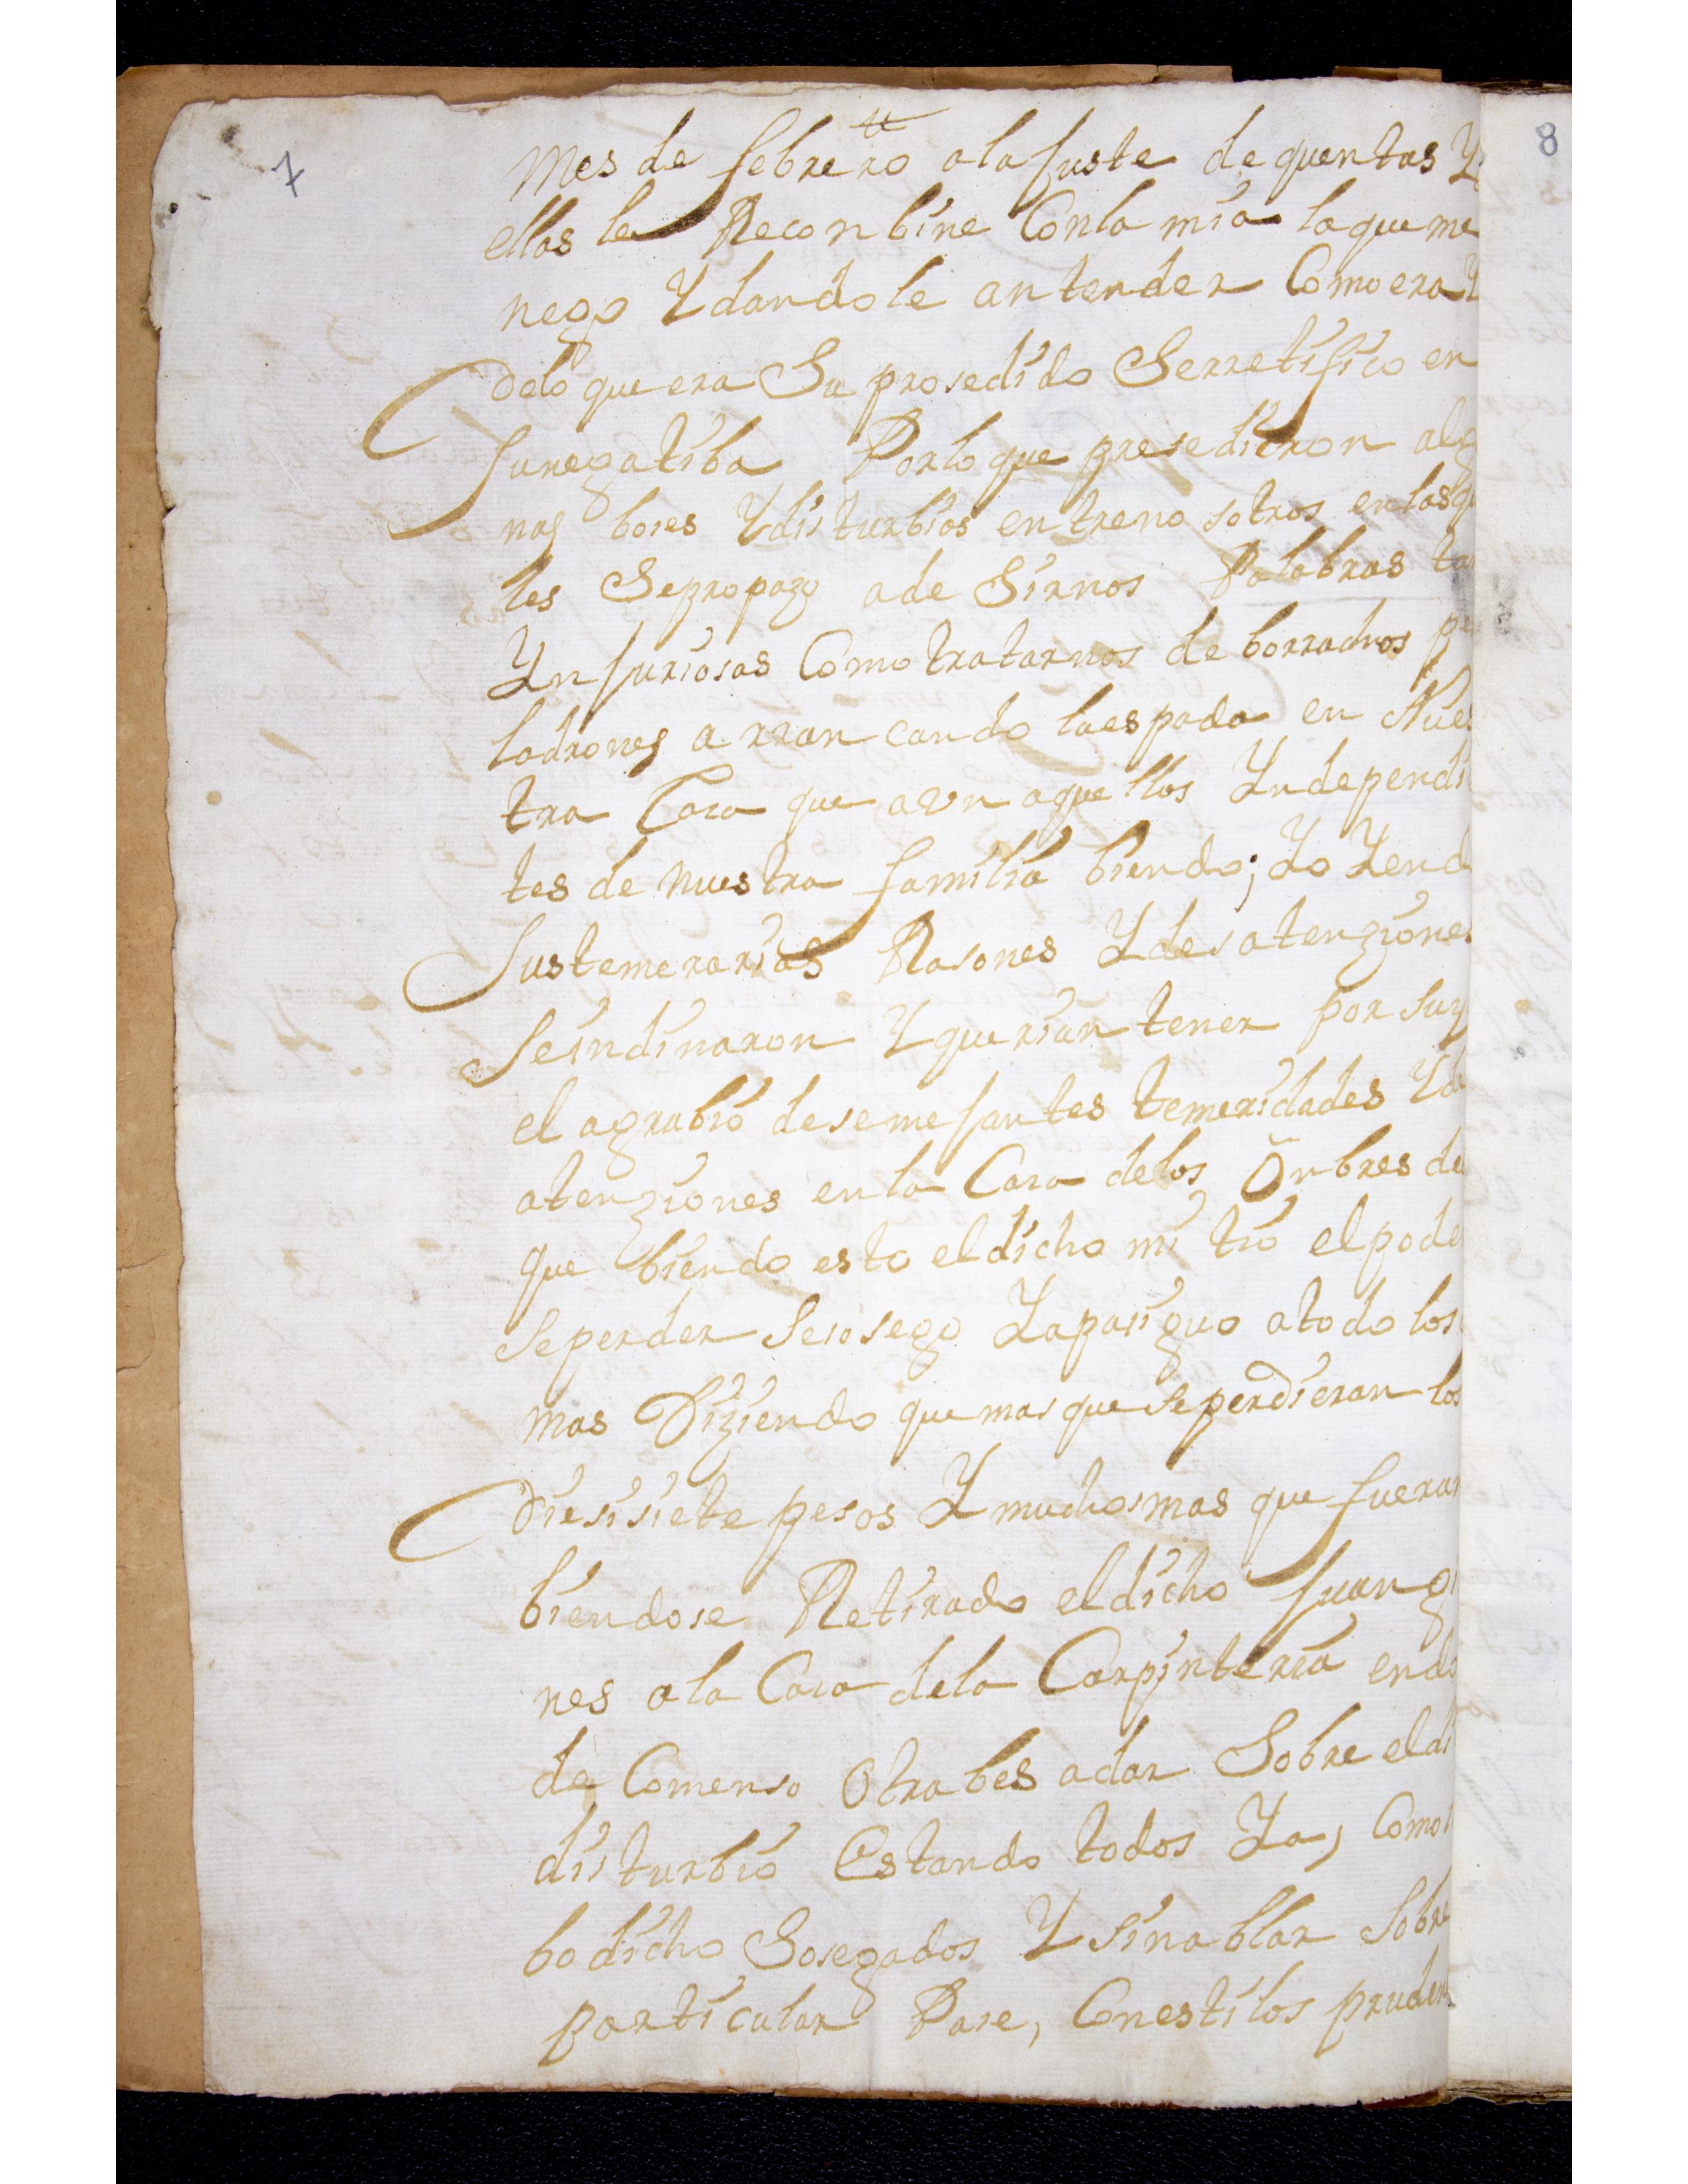 7
8
mes de febrero alafuste de quentas Y
ellas le Reconbine Conla mia laqueme
nego Ydandole antender Comoera
delo que era Su prosedido Serretifico en
Sunegatiba Porloque presedieron alg
nas boses Ydisturbios entrenosotros enlasq
les Sepropazo adesirnos Palabras tan
Ynjuriosas Como tratarnos de borrachos pe
ladrones arrancando laespada en Nues
tra Casa que aun aquellos Yndependi
tes de nuestra familia biendo; Yo Yend
Sustemerarias Rasones Ydesatenziones
Seindinaron Yquerian tener por Suy
el agrabio desemejantes temeridades Yde
atenziones enla Casa delos Onbres de
que biendo esto eldicho mi tio elpode
Seperder Sesosego Yapasiguo atodo los
mas Diziendo quemasque Seperdieran los
diesisiete pesos Y muchosmas que fueran
biendose Retirado eldicho Juan gi
nes ala Casa dela Carpinteria endo
de Comenso Otrabes adar Sobre eldi
disturbio Estando todos Ya, Como
bodicho Sosegados Y sinablar Sobre
particular Pase, Conestilos pruden